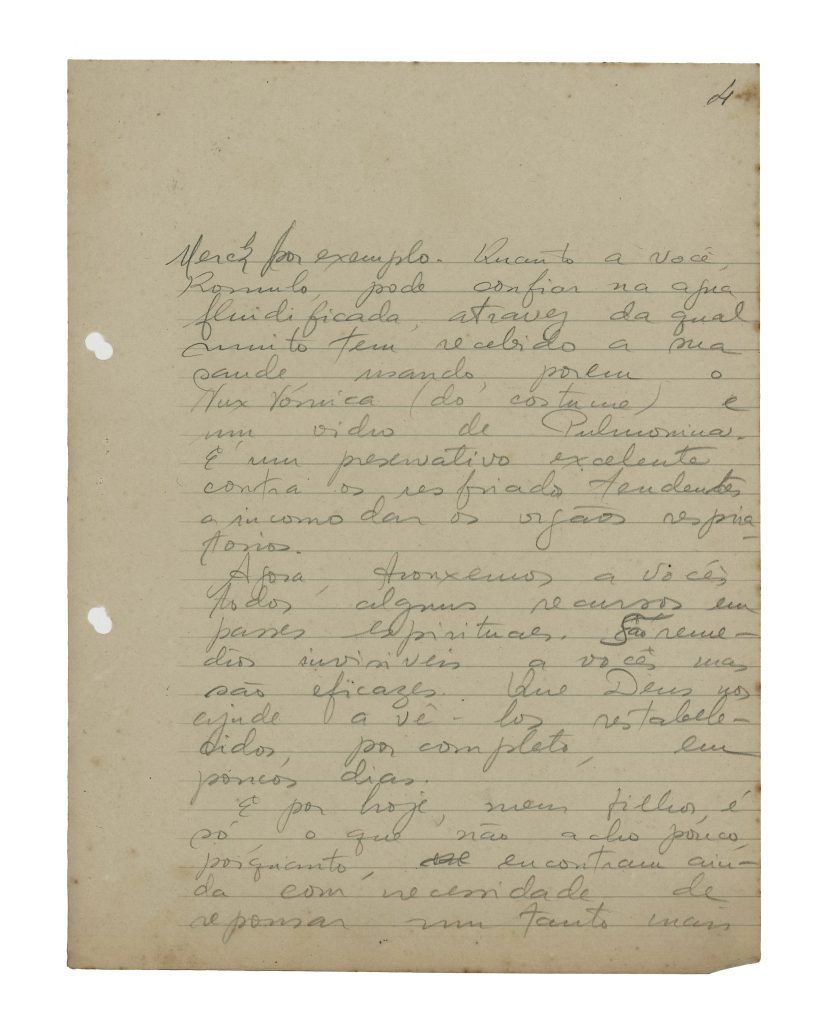 4
Merck por exemplo. Quanto a você,
Romulo, pode confiar na agua
fluidificada, atravez da qual
muito tem recebido a sua
saude usando, porem o
Nux Vómica (do costume) e
um vidro de Pulmonina.
É um preservativo excelente
contra os resfriado tendentes
a incomodar os orgãos respira-
torios.
Agora, trouxemos a vocês
todos alguns recursos em
passes espirituaes. São reme-
dios invisiveis a vocês mas
são eficazes. Que Deus nos
ajude a vê-los restabele-
cidos, por completo, em
poucos dias.
E por hoje, meus filhos, é
só o que não acho pouco,
porquanto, encontram ain-
da com necessidade de
repousar um tanto mais